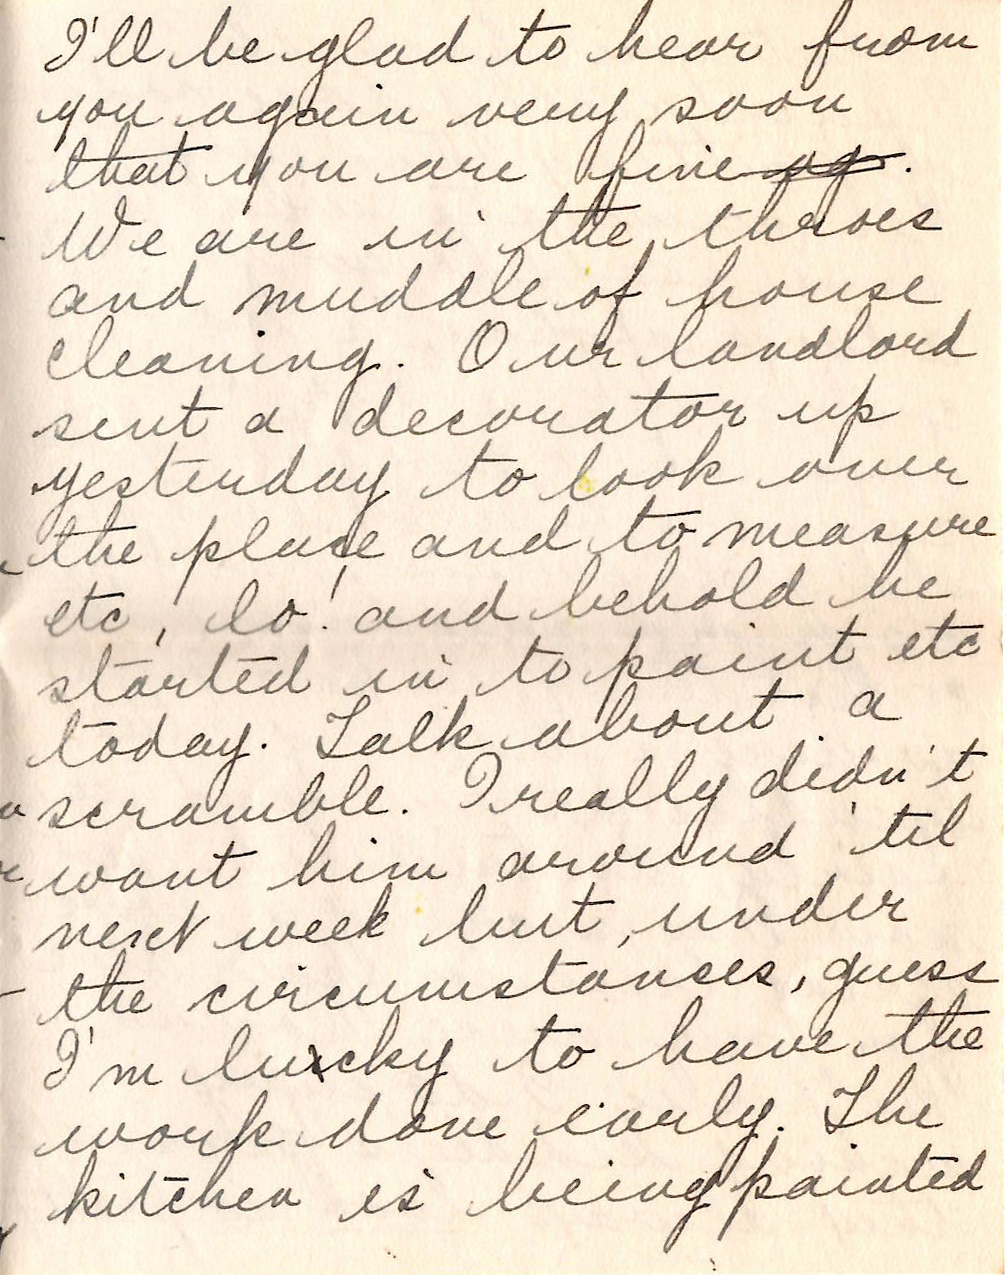 I'll be glad to hear from
you again very soon
that you are fine ag.
We are in the throes
and muddle of house
cleaning. Our landlord
sent a decorator up
yesterday to look over
the place and to measure
etc, lo! and behold he
started in to paint etc
today. Talk about a
scramble. I really didn't
want him around 'til
next week but, under
the circumstances, guess
I'm lucky to have the
work done early. The
kitchen is being painted